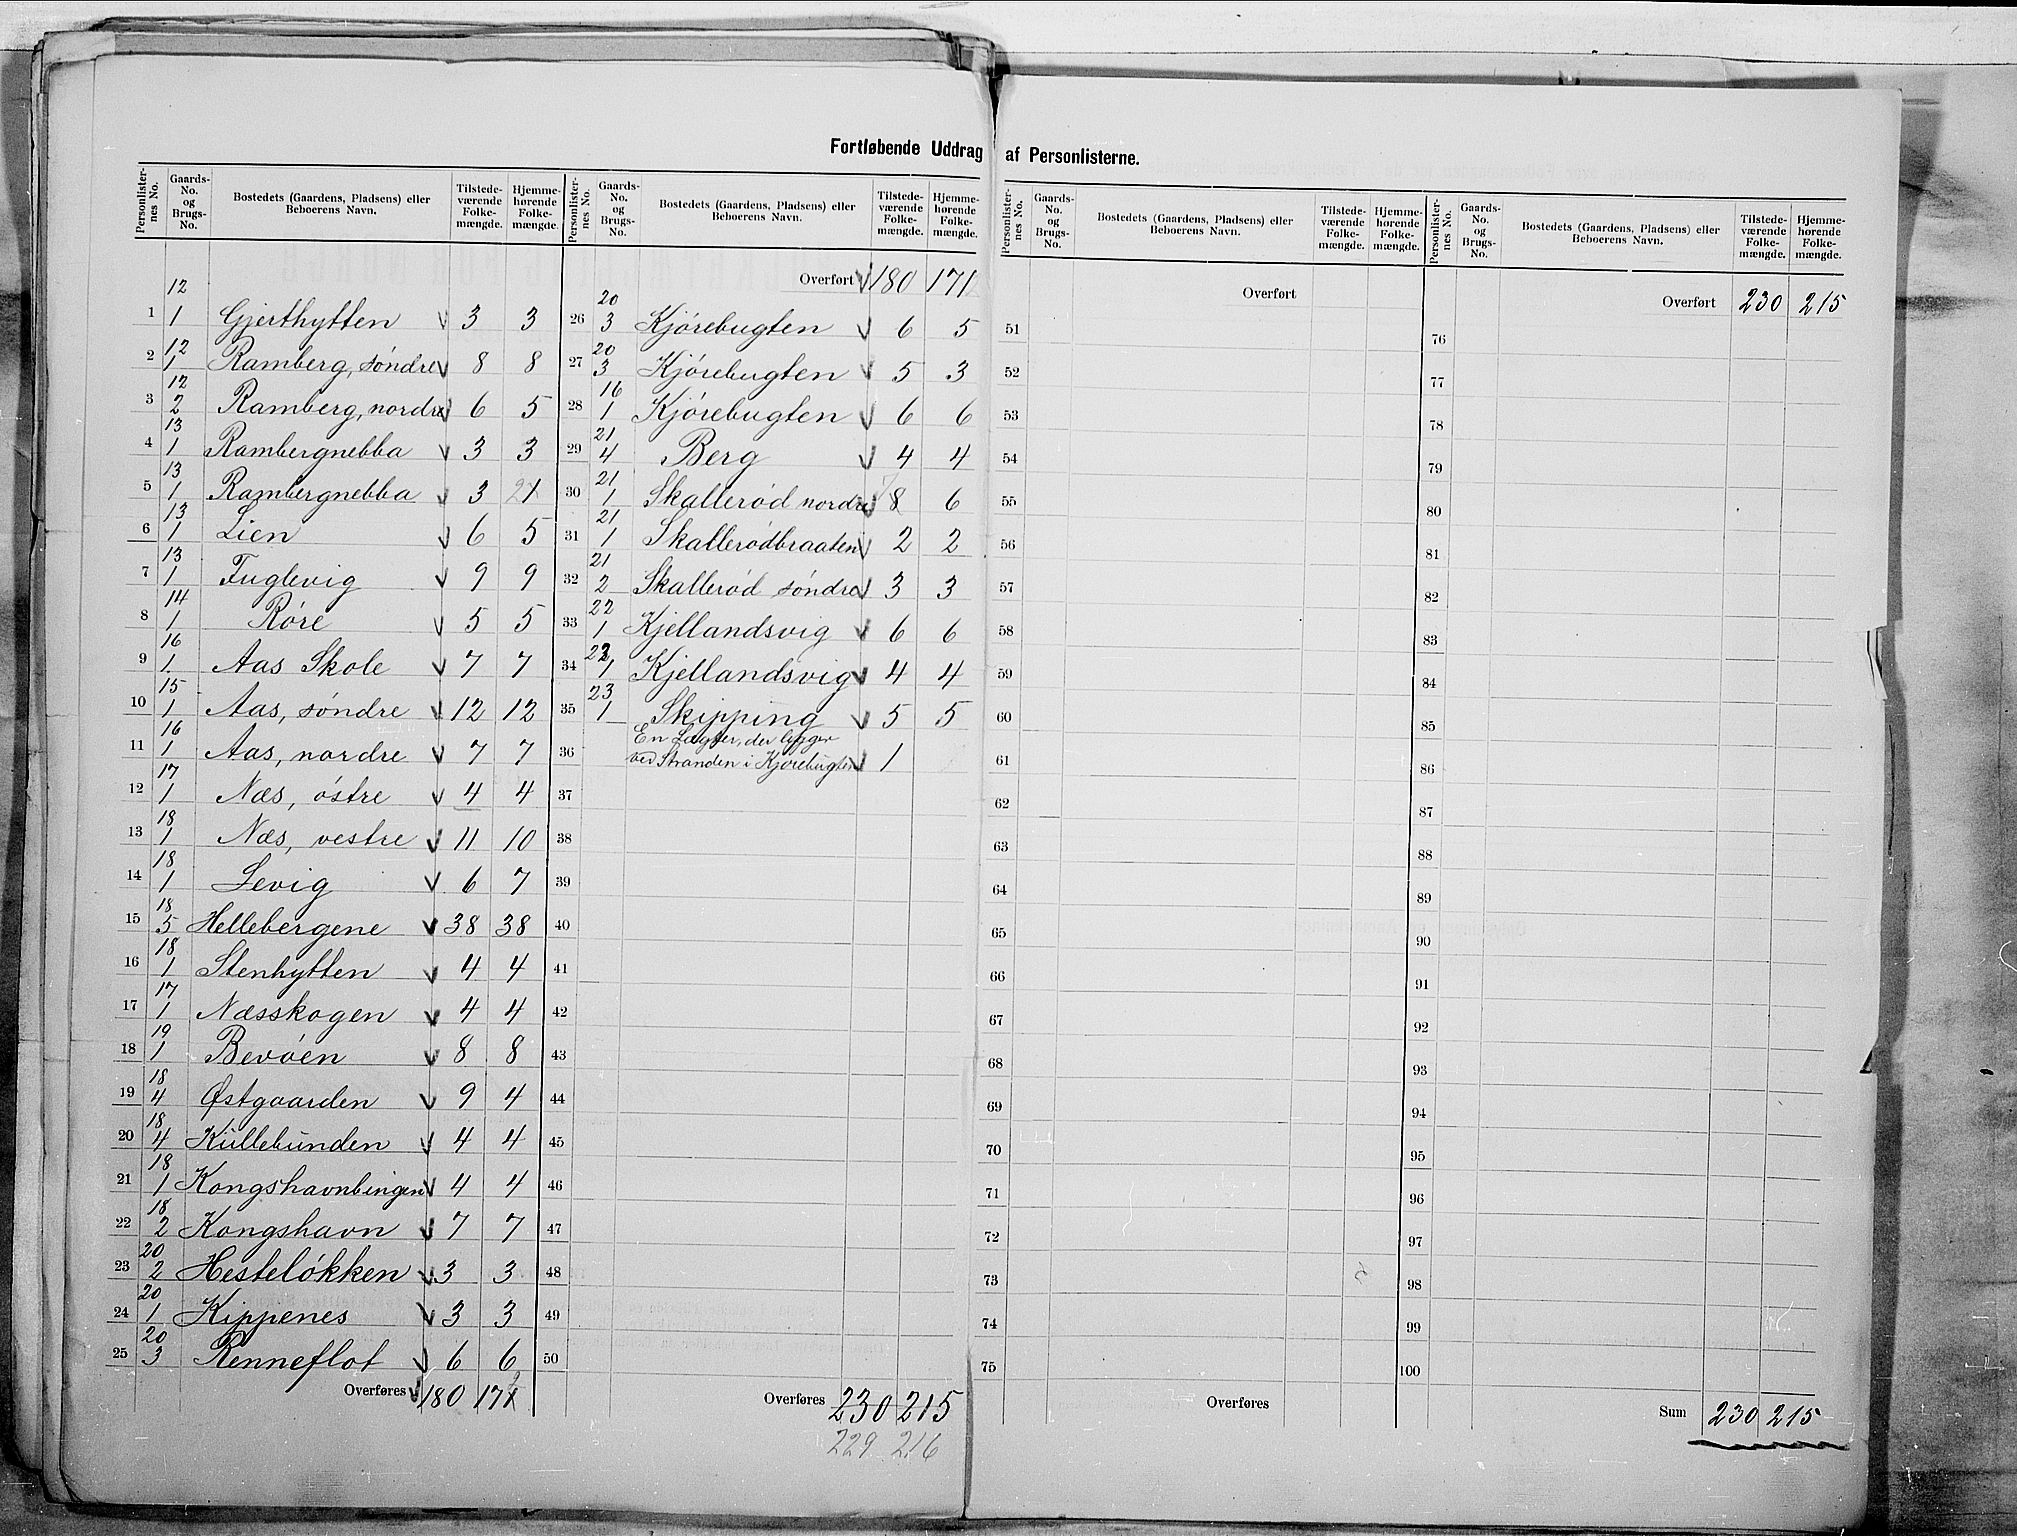 Fortløbende Uddrag af Personlisterne.
Personlisternes No. | Gaards-No. og Brugs-No. | Bostedets (Gaardens, Pladsens) eller Beboerens Navn. | Tilstedeværende Folkemængde. | Hjemmehørende Folkemængde.
1 | 12 1 | Gjerthytten | 3 | 3
2 | 12 1 | Ramberg, søndre | 8 | 8
3 | 12 2 | Ramberg, nordre | 6 | 5
4 | 13 1 | Rambergnebba | 3 | 3
5 | 13 1 | Rambergnebba | 3 | 2 1
6 | 13 1 | Lien | 6 | 5
7 | 13 1 | Fuglevig | 9 | 9
8 | 14 1 | Røre | 5 | 5
9 | 16 1 | Aas Skole | 7 | 7
10 | 15 1 | Aas, søndre | 12 | 12
11 | 16 1 | Aas, nordre | 7 | 7
12 | 17 1 | Næs, østre | 4 | 4
13 | 18 1 | Næs, vestre | 11 | 10
14 | 18 1 | Levig | 6 | 7
15 | 18 5 | Hellebergene | 38 | 38
16 | 18 1 | Stenhytten | 4 | 4
17 | 17 1 | Næsskogen | 4 | 4
18 | 19 1 | Bevøen | 8 | 8
19 | 18 4 | Østgaarden | 9 | 4
20 | 18 4 | Kullebunden | 4 | 4
21 | 18 1 | Kongshavnbingen | 4 | 4
22 | 18 2 | Kongshavn | 7 | 7
23 | 20 2 | Hesteløkken | 3 | 3
24 | 20 1 | Kippenes | 3 | 3
25 | 20 3 | Renneflot | 6 | 6
Overføres 180 171
Personlisternes No. | Gaards-No. og Brugs-No. | Bostedets (Gaardens, Pladsens) eller Beboerens Navn. | Tilstedeværende Folkemængde. | Hjemmehørende Folkemængde.
Overført 180 171
26 | 20 3 | Kjørebugten | 6 | 5
27 | 20 3 | Kjørebugten | 5 | 3
28 | 16 1 | Kjørebugten | 6 | 6
29 | 21 4 | Berg | 4 | 4
30 | 21 1 | Skallerød nordre | 8 | 6
31 | 21 1 | Skallerødbraaten | 2 | 2
32 | 21 2 | Skallerød søndre | 3 | 3
33 | 22 1 | Kjellandsvig | 6 | 6
34 | 22 1 | Kjellandsvig | 4 | 4
35 | 23 1 | Skipping | 5 | 5
36 | En Lægter, der ligger
ved Stranden i Kjørebugten | 1
37
38
39
40
41
42
43
44
45
46
47
48
49
50
Overføres 230 215
229 216
Personlisternes No. | Gaards-No. og Brugs-No. | Bostedets (Gaardens, Pladsens) eller Beboerens Navn. | Tilstedeværende Folkemængde. | Hjemmehørende Folkemængde.
Overført
51
52
53
54
55
56
57
58
59
60
61
62
63
64
65
66
67
68
69
70
71
72
73
74
75
Overføres
Personlisternes No. | Gaards-No. og Brugs-No. | Bostedets (Gaardens, Pladsens) eller Beboerens Navn. | Tilstedeværende Folkemængde. | Hjemmehørende Folkemængde.
Overført 230 215
76
77
78
79
80
81
82
83
84
85
86
87
88
89
90
91
92
93
94
95
96
97
98
99
100
Sum 230 215